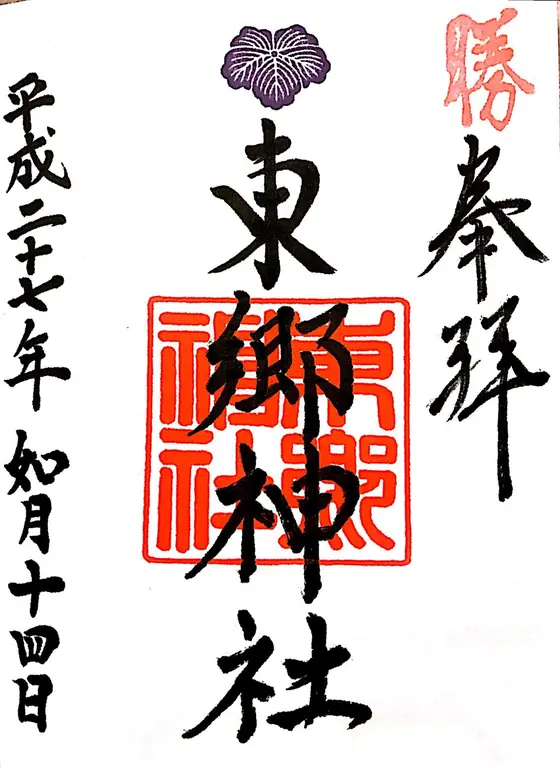 勝
奉拝
東郷神社
東郷神社
平成二十七年 如月十四日